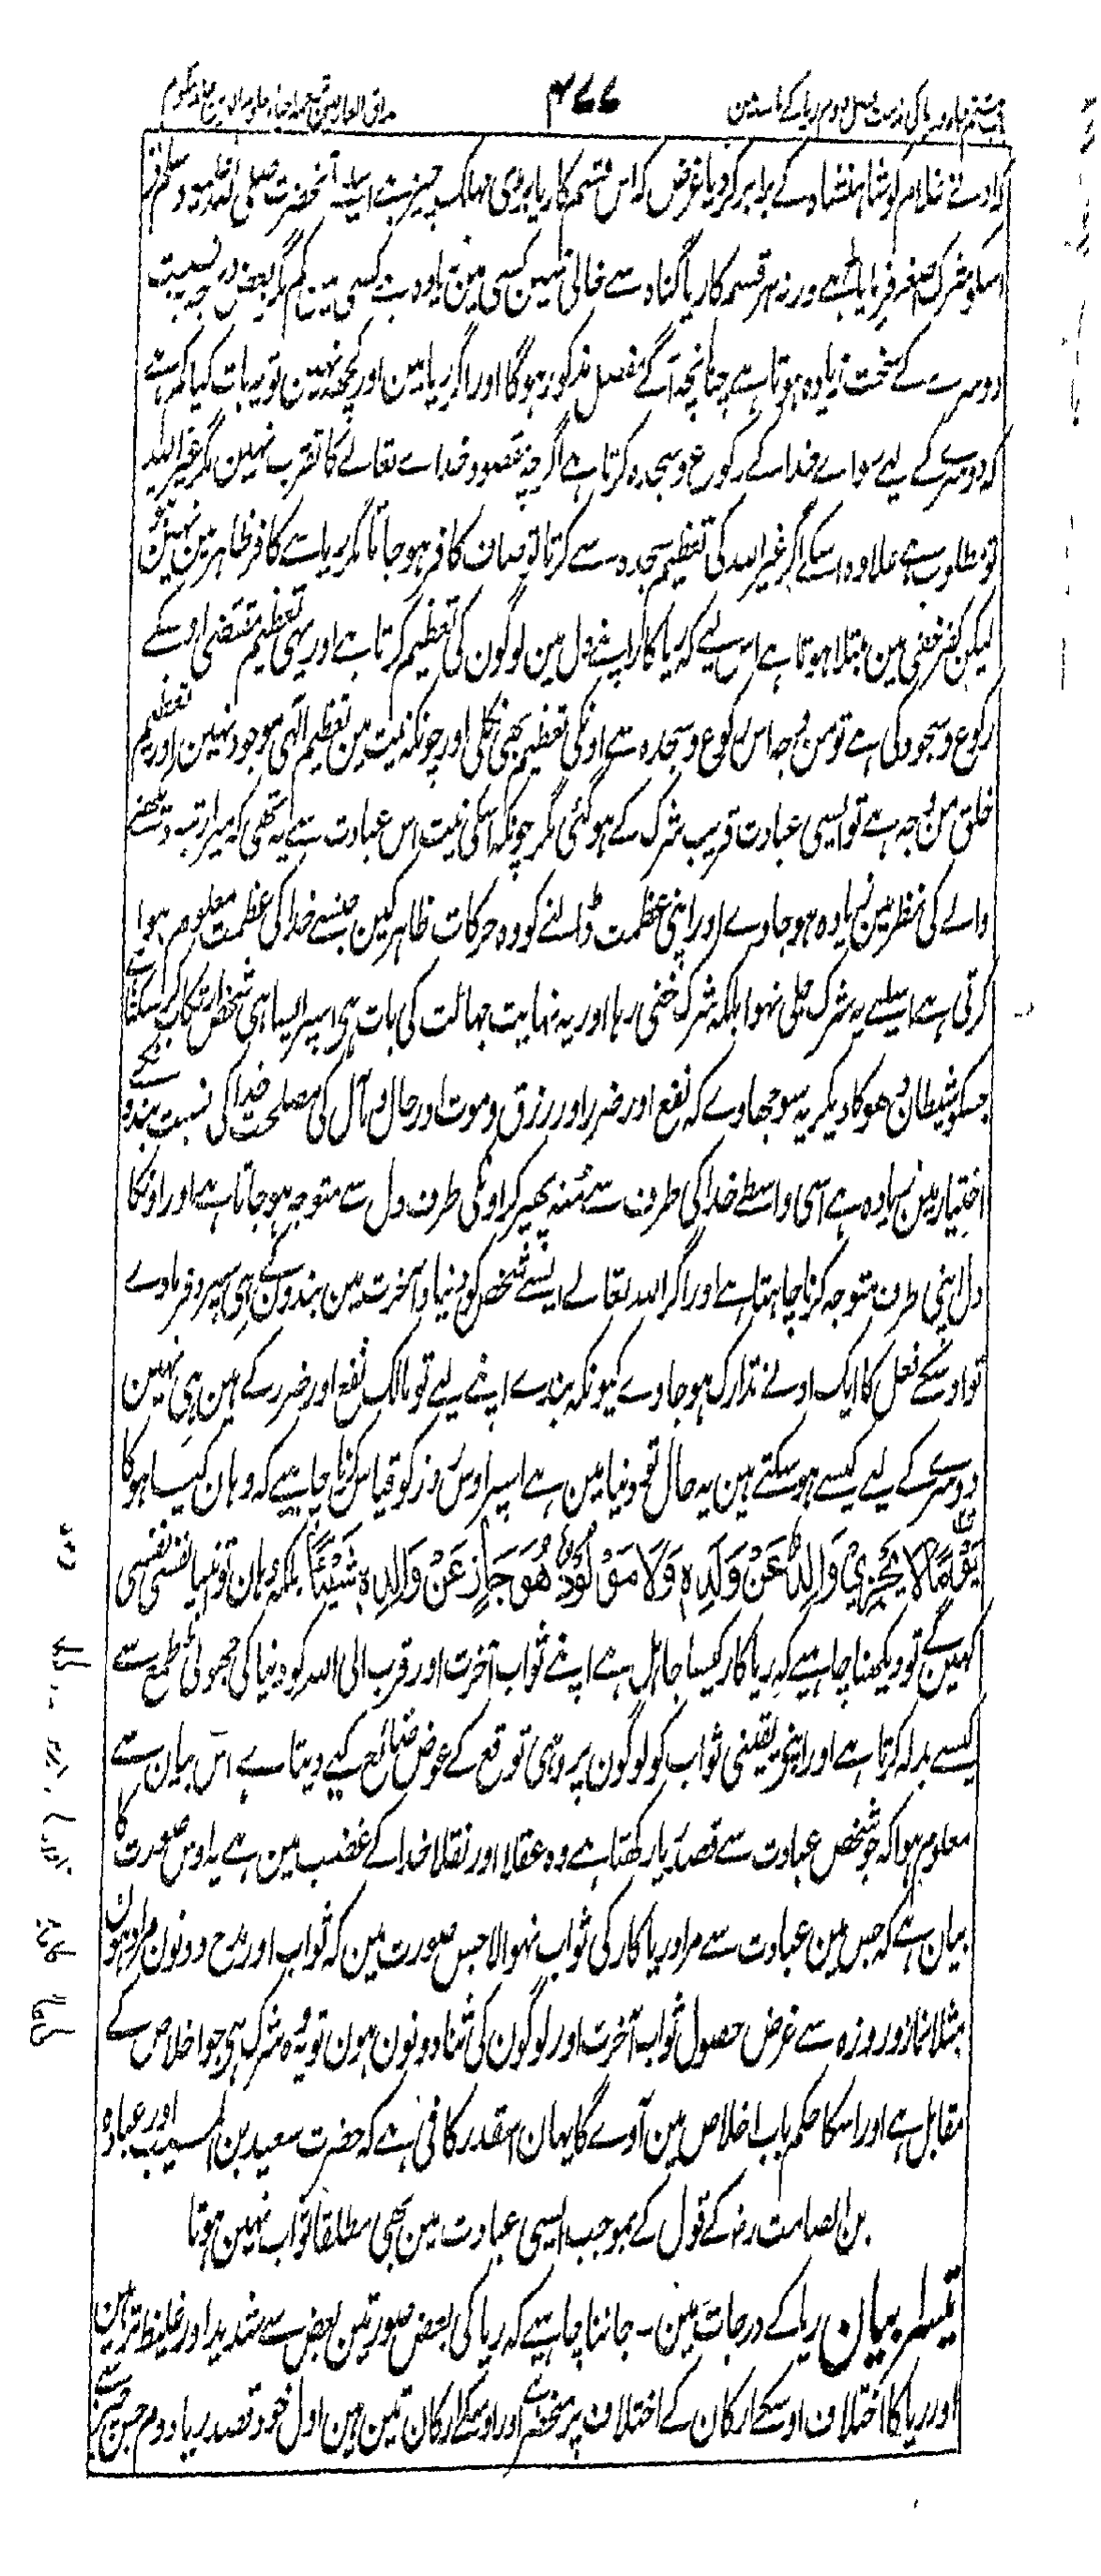 ۳۷۷
غلام کو شاہنشاہ کے برابر کر دیا غرض کہ اس قسم کا ریا بڑی مہلک چیز ہے اسیلئے آنحضرت صلی اللہ علیہ وسلم نے
اسکو شرک اصغر فرمایا ہے ورنہ ہر قسم کا ریا گناہ سے خالی نہین کسی مین زیادہ ہے کسی مین کم مگر بعض درجہ بہ نسبت
دوسرے کے سخت زیادہ ہوتا ہے چنانچہ آگے مفصل مذکور ہوگا اور اگر ریا مین اور کچھ نہین تو یہ بات کیا کم ہے
کہ دوسرے کے لیے سواے خدا کے رکوع و سجدہ کرتا ہے اگرچہ مقصود خداے تعالے کا تقرب نہین مگر غیر اللہ
تو مطلوب ہے علاوہ اسکے اگر غیر اللہ کی تعظیم سجدہ سے کرتا تو صاف کافر ہو جاتا مگر ریا سے کافر ظاہر مین نہین
لیکن کفر خفی مین مبتلا ہوتا ہے اس لیے کہ ریاکار اپنے دل مین لوگون کی تعظیم کرتا ہے اور یہی تعظیم مقتضی اوسکے
رکوع و سجود کی ہے تو من وجہ اس رکوع و سجدہ سے اونکی تعظیم بھی نکلی اور چونکہ نیت مین تعظیم الٰہی موجود نہین اور تعظیم
خلق من وجہ ہے تو ایسی عبادت قریب شرک کے ہو گئی مگر چونکہ اسکی نیت اس عبادت سے یہ تھی کہ میرا رتبہ دیکھنے
والے کی نظر مین زیادہ ہو جاوے اور اپنی عظمت ڈالنے کو وہ حرکات ظاہر کین جنسے خدا کی عظمت معلوم ہوا
کرتی ہے اسیلیے یہ شرک جلی نہوا بلکہ شرک خفی رہا اور یہ نہایت جہالت کی بات ہی اسپر ایسا ہی شخص ارتکاب کر سکتا ہے
جسکو شیطان دھوکا دیکر یہ سوجھاوے کہ نفع اور ضرر اور رزق و موت اور حال و مآل کی مصلحت خدا کی نسبت بندون کے
اختیار مین زیادہ ہے اسی واسطے خدا کی طرف سے منہ پھیر کر اونکی طرف دل سے متوجہ ہو جاتا ہے اور اونکا
دل اپنی طرف متوجہ کرنا چاہتا ہے اور اگر اللہ تعالے ایسے شخص کو دنیا و آخرت مین بندون کے ہی سپرد فرماوے
تو اوسکے فعل کا ایک ادنے تدارک ہو جاوے کیونکہ بندے اپنے لیے تو مالک نفع اور ضرر کے ہین ہی نہین
دوسرے کے لیے کیسے ہو سکتے ہین یہ حال تو دنیا مین ہے اسپر اوس روز کو قیاس کرنا چاہیے کہ وہان کیسا ہوگا
يَوْمًا لَا يَجْزِيْ وَالِدٌ عَنْ وَلَدِهٖ وَلَا مَوْلُوْدٌ هُوَ جَازٍ عَنْ وَالِدِهٖ شَيْئًا بلکہ وہان تو انبیا نفسی نفسی
کہین گے تو دیکھنا چاہیے کہ ریاکار کیسا جاہل ہے اپنے ثواب آخرت اور قرب الی اللہ کو دنیا کی جھوٹی طمع سے
کیسے بدلہ کرتا ہے اور اپنی یقینی ثواب کو لوگون پر وہمی توقع کے عوض ضائع کیے دیتا ہے اس بیان سے
معلوم ہوا کہ جو شخص عبادت سے قصد ریا رکھتا ہے وہ عقلا اور نقلا خدا کے غضب مین ہے یہ اوس صورت کا
بیان ہے کہ جس مین عبادت سے مراد ریاکار کی ثواب نہو والا جس صورت مین کہ ثواب اور مدح دونون مراد ہون
مثلا نماز و روزہ سے غرض حصول ثواب آخرت اور لوگون کی ثنا دونون ہون تو یہ وہ شرک ہی جو اخلاص کے
مقابل ہے اور اسکا حکم باب اخلاص مین آوے گا یہان اسقدر کافی ہے کہ حضرت سعید بن المسیب اور عبادہ
بن الصامت رض کے قول کے بموجب ایسی عبادت مین بھی مطلقا ثواب نہین ہوتا
تیسرا بیان ریا کے درجات مین ۔ جاننا چاہیے کہ ریا کی بعض صورتین بعض سے شدید اور غلیظ تر ہین
اور ریا کا اختلاف اوسکے ارکان کے اختلاف پر منحصر ہے اور اوسکے ارکان تین ہین اول خود قصد ریا دوم جس چیز سے